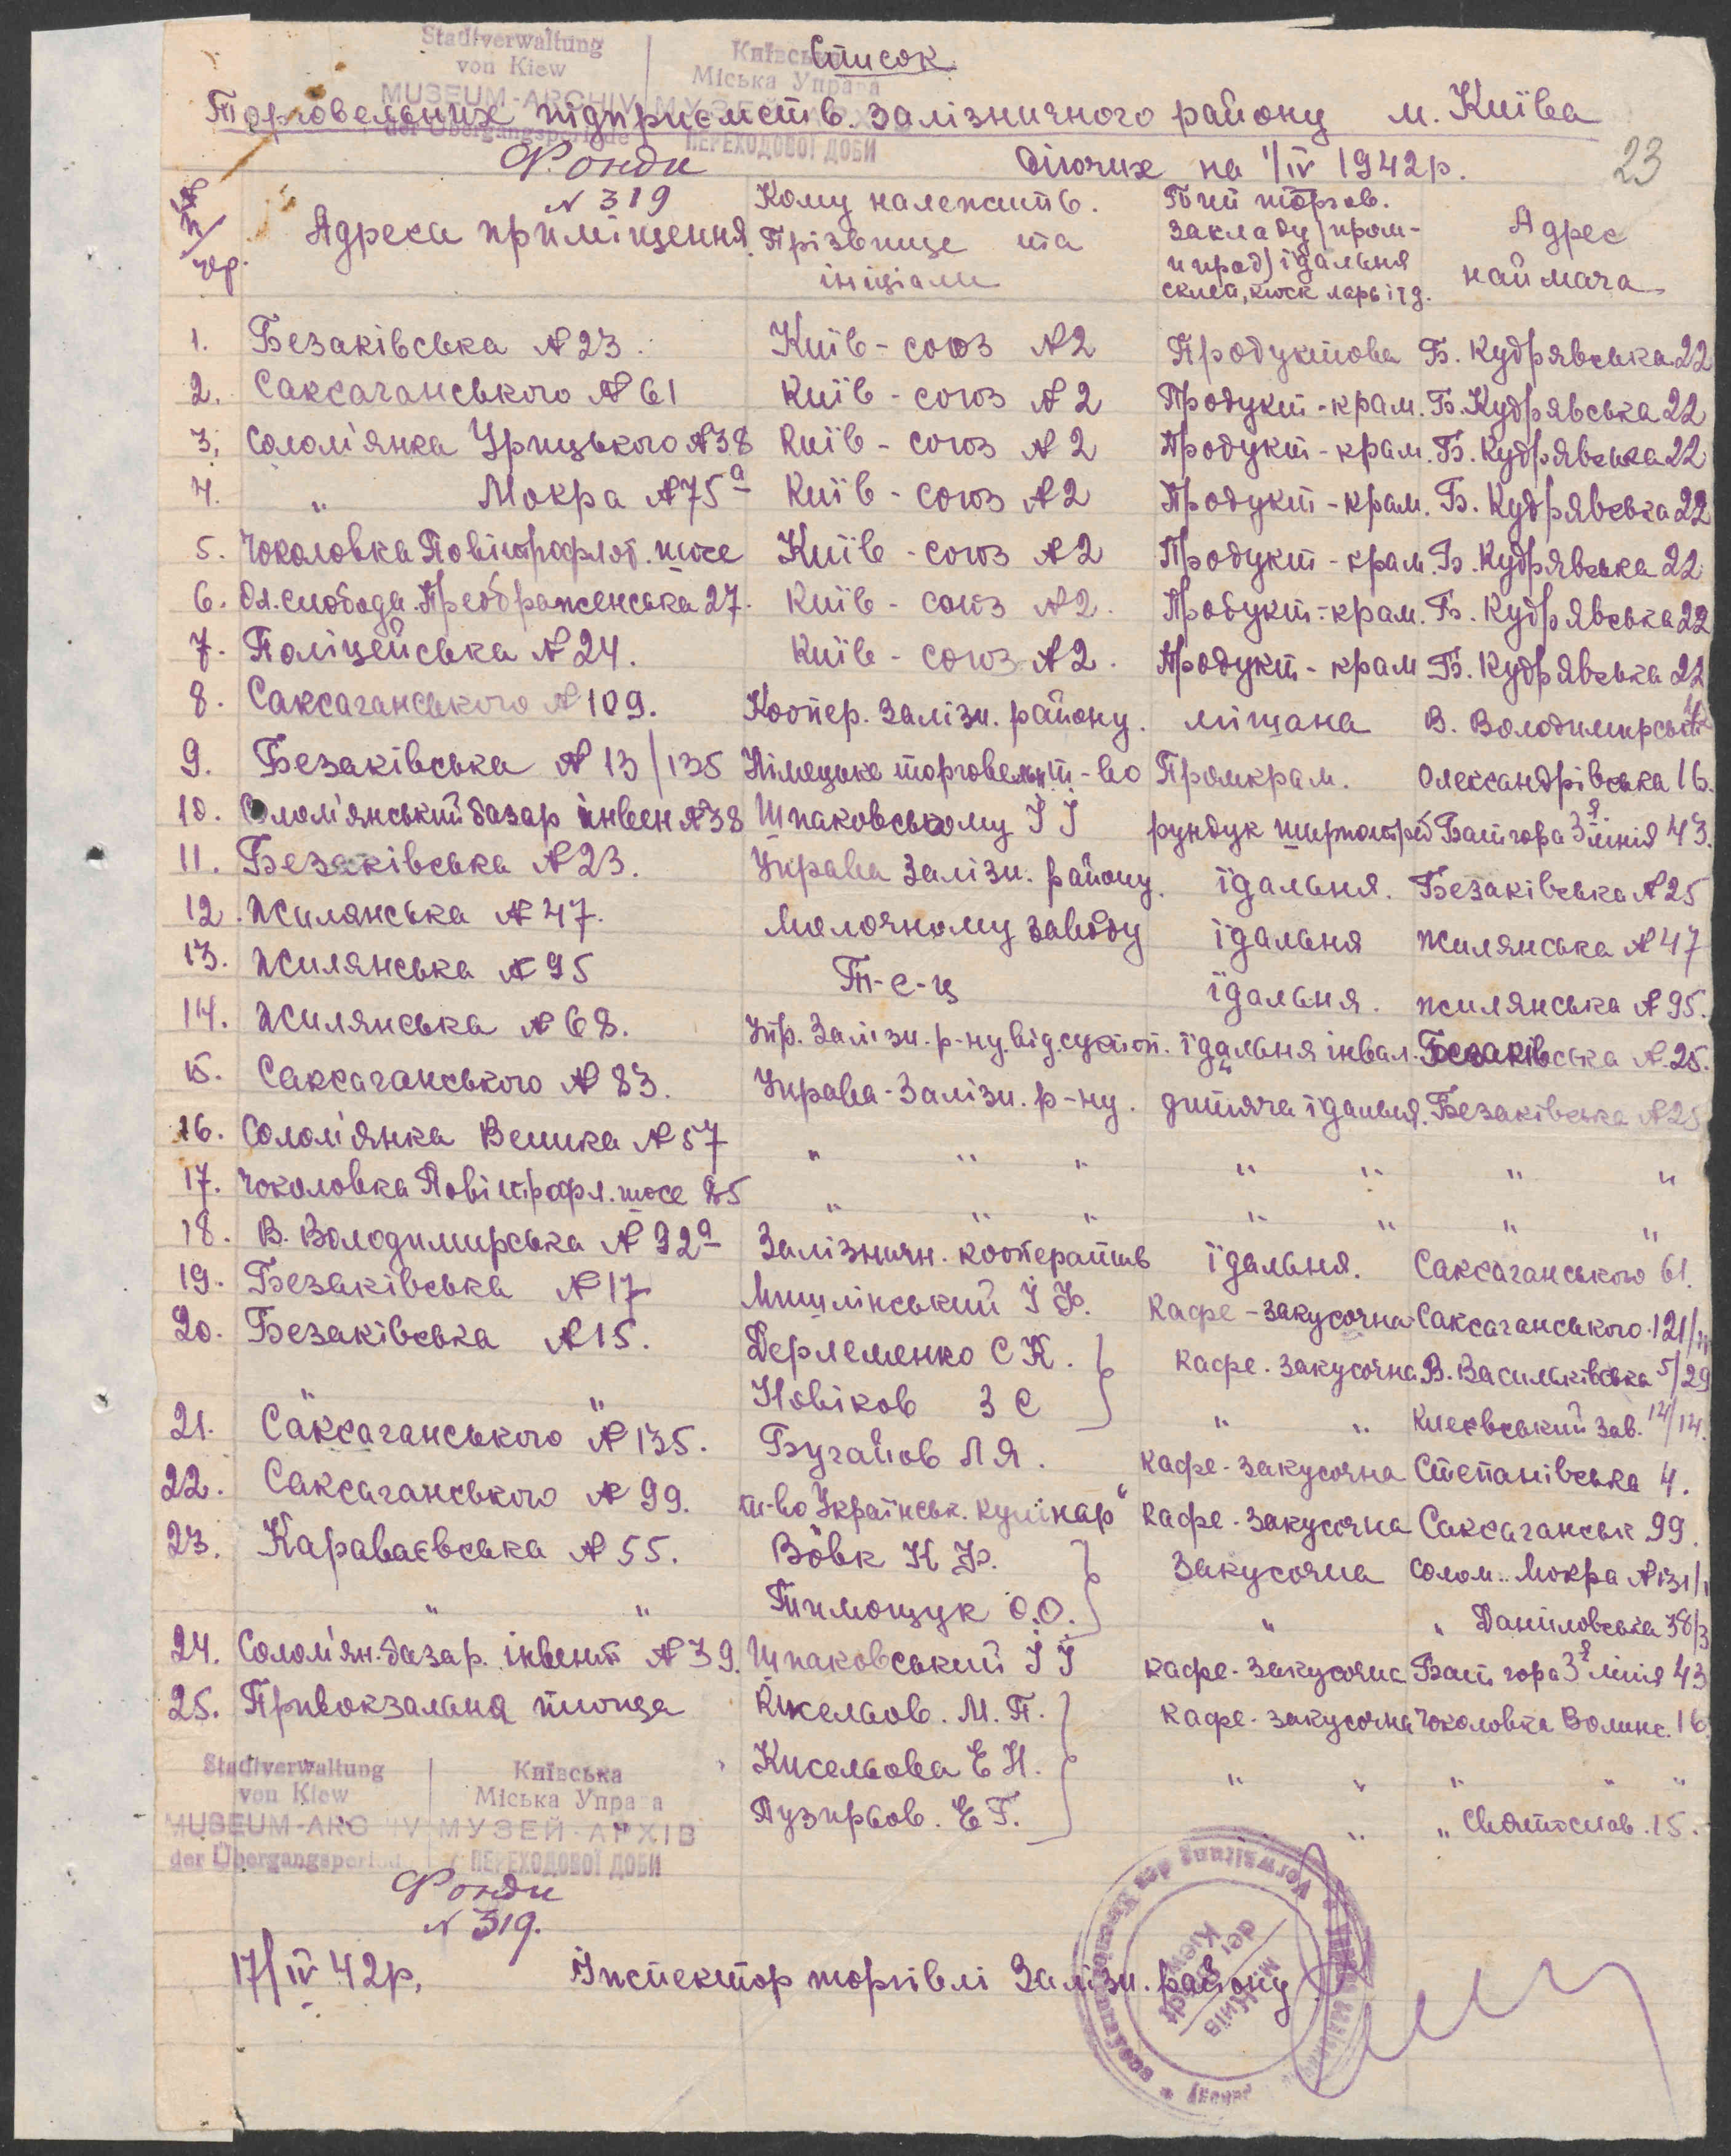 Stadtverwaltung
von Kiew
MUSEUM-ARCHIV
der Übergangsperiode
Київська
Міська Управа
МУЗЕЙ-АРХІВ
ПЕРЕХОДОВОЇ ДОБИ
Список
Торговельних підприємств Залізничного району м. Київа
Фонди діючих на 1/IV 1942р. 23
№ 319
№ п/чер. Адреса приміщення Кому належить. Прізвище та ініціали Тип торгов. закладу (пром- и прод) їдальня склеп, кіоск ларь і т д. Адрес наймача
1. Безаківська №23. Київ-союз №2 Продуктова Б. Кудрявська 22
2. Саксаганського №61 Київ-союз №2 Продукт-крам. Б. Кудрявська 22
3. Солом'янка Урицького №38 Київ-союз №2 Продукт-крам. Б. Кудрявська 22
4. " Мокра №75а Київ-союз №2 Продукт-крам. Б. Кудрявська 22
5. Чоколовка Повітрофлот. шосе Київ-союз №2 Продукт-крам. Б. Кудрявська 22
6. Ол. слобода. Преображенська 27. Київ-союз №2. Продукт-крам. Б. Кудрявська 22
7. Поліцейська №24. Київ-союз №2. Продукт-крам Б. Кудрявська 22
8. Саксаганського №109. Коопер. Залізн. району. мішана В. Володимирська
9. Безаківська №13/135 Німецьке торговельн. т-во Промкрам. Олександрівська 16.
10. Солом'янський базар інвен №38 Шпаковському І І рундук ширпотреб Бат гора 3я лінія 43.
11. Безаківська №23. Управа Залізн. району. їдальня. Безаківська №25
12. Жилянська №47. Молочному заводу їдальня Жилянська №47
13. Жилянська №95 Т-е-ц їдальня. Жилянська №95.
14. Жилянська №68. Упр. Залізн. р-ну. їдальня інвал. Безаківська №25.
15. Саксаганського №83. Управа-Залізн. р-ну. дитяча їдальня. Безаківська №25
16. Солом'янка Велика №57 " " " " " " "
17. Чоколовка Повітрофл. шосе 25 " " " " " " "
18. В. Володимирська №92а Залізничн. кооператив їдальня. Саксаганського 61.
19. Безаківська №17 Мишлінський І Ф. Кафе-закусочна Саксаганського 121/
20. Безаківська №15. Дерлеменко С К. Кафе-закусочна В. Васильківська 5/29
" " Новіков З С " " Києвський зав. 14/14.
21. Саксаганського №135. Бугайов Л Я. Кафе-закусочна Степанівська 4.
22. Саксаганського №99. т-во Українськ. кулінар" Кафе-закусочна Саксаганськ 99.
23. Караваєвська №55. Вовк Н Ф. Закусочна Солом. Мокра №131/1
" " Тимощук О.О. " " Даніловська 38/3
24. Солом'ян. базар. інвент №39. Шпаковський І І кафе-закусочна Бат гора 3я лінія 43
25. Привокзальна площа Кисельов. М. П. Кафе-закусочна Чоколовка Волинс. 16
Кисельова Е Н. " " " " "
Пузирьов. Е Г. " " Святослав. 15.
Stadtverwaltung
von Kiew
MUSEUM-ARCHIV
der Übergangsperiode
Київська
Міська Управа
МУЗЕЙ-АРХІВ
ПЕРЕХОДОВОЇ ДОБИ
Фонди
№ 319.
17/IV 42р. Інспектор торгівлі Залізн. району